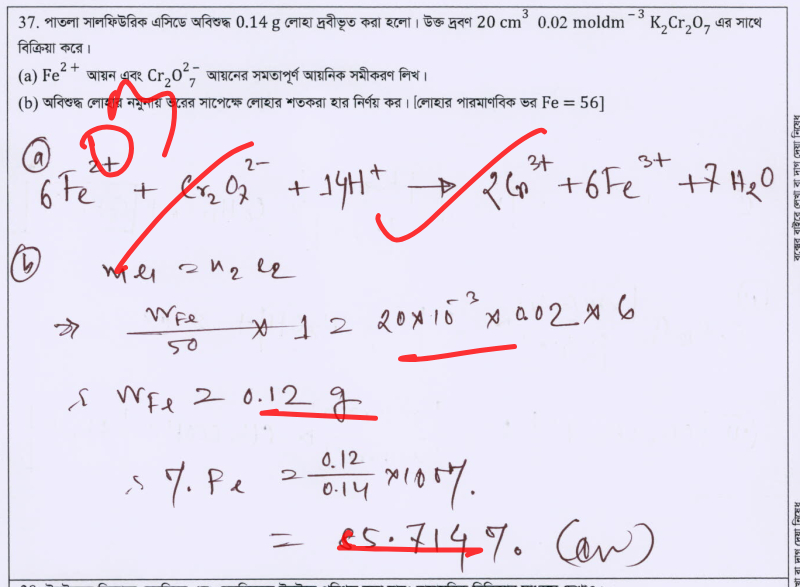 37. পাতলা সালফিউরিক এসিডে অবিশুদ্ধ 0.14 g লোহা দ্রবীভূত করা হলো। উক্ত দ্রবণ 20 cm³ 0.02 moldm⁻³ K₂Cr₂O₇ এর সাথে
বিক্রিয়া করে।
(a) Fe²⁺ আয়ন এবং Cr₂O₇²⁻ আয়নের সমতাপূর্ণ আয়নিক সমীকরণ লিখ।
(b) অবিশুদ্ধ লোহার নমুনায় ভরের সাপেক্ষে লোহার শতকরা হার নির্ণয় কর। [লোহার পারমাণবিক ভর Fe = 56]
(a) 6Fe²⁺ + Cr₂O₇²⁻ + 14H⁺ → 2Cr³⁺ + 6Fe³⁺ + 7H₂O
(b) n₁e₁ = n₂e₂
⇒ W_Fe/50 × 1 = 20×10⁻³ × 0.02 × 6
∴ W_Fe = 0.12 g
∴ %. Fe = 0.12/0.14 × 100%.
= 85.714%. (an)